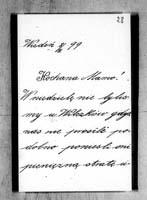 28
Wiedeń 99
Kochana Mamo!
W niedzielę nie byliś
my u Wilczków gdyż
nas nie prosili po
dobno ponieśli oni
pieniężną stratę